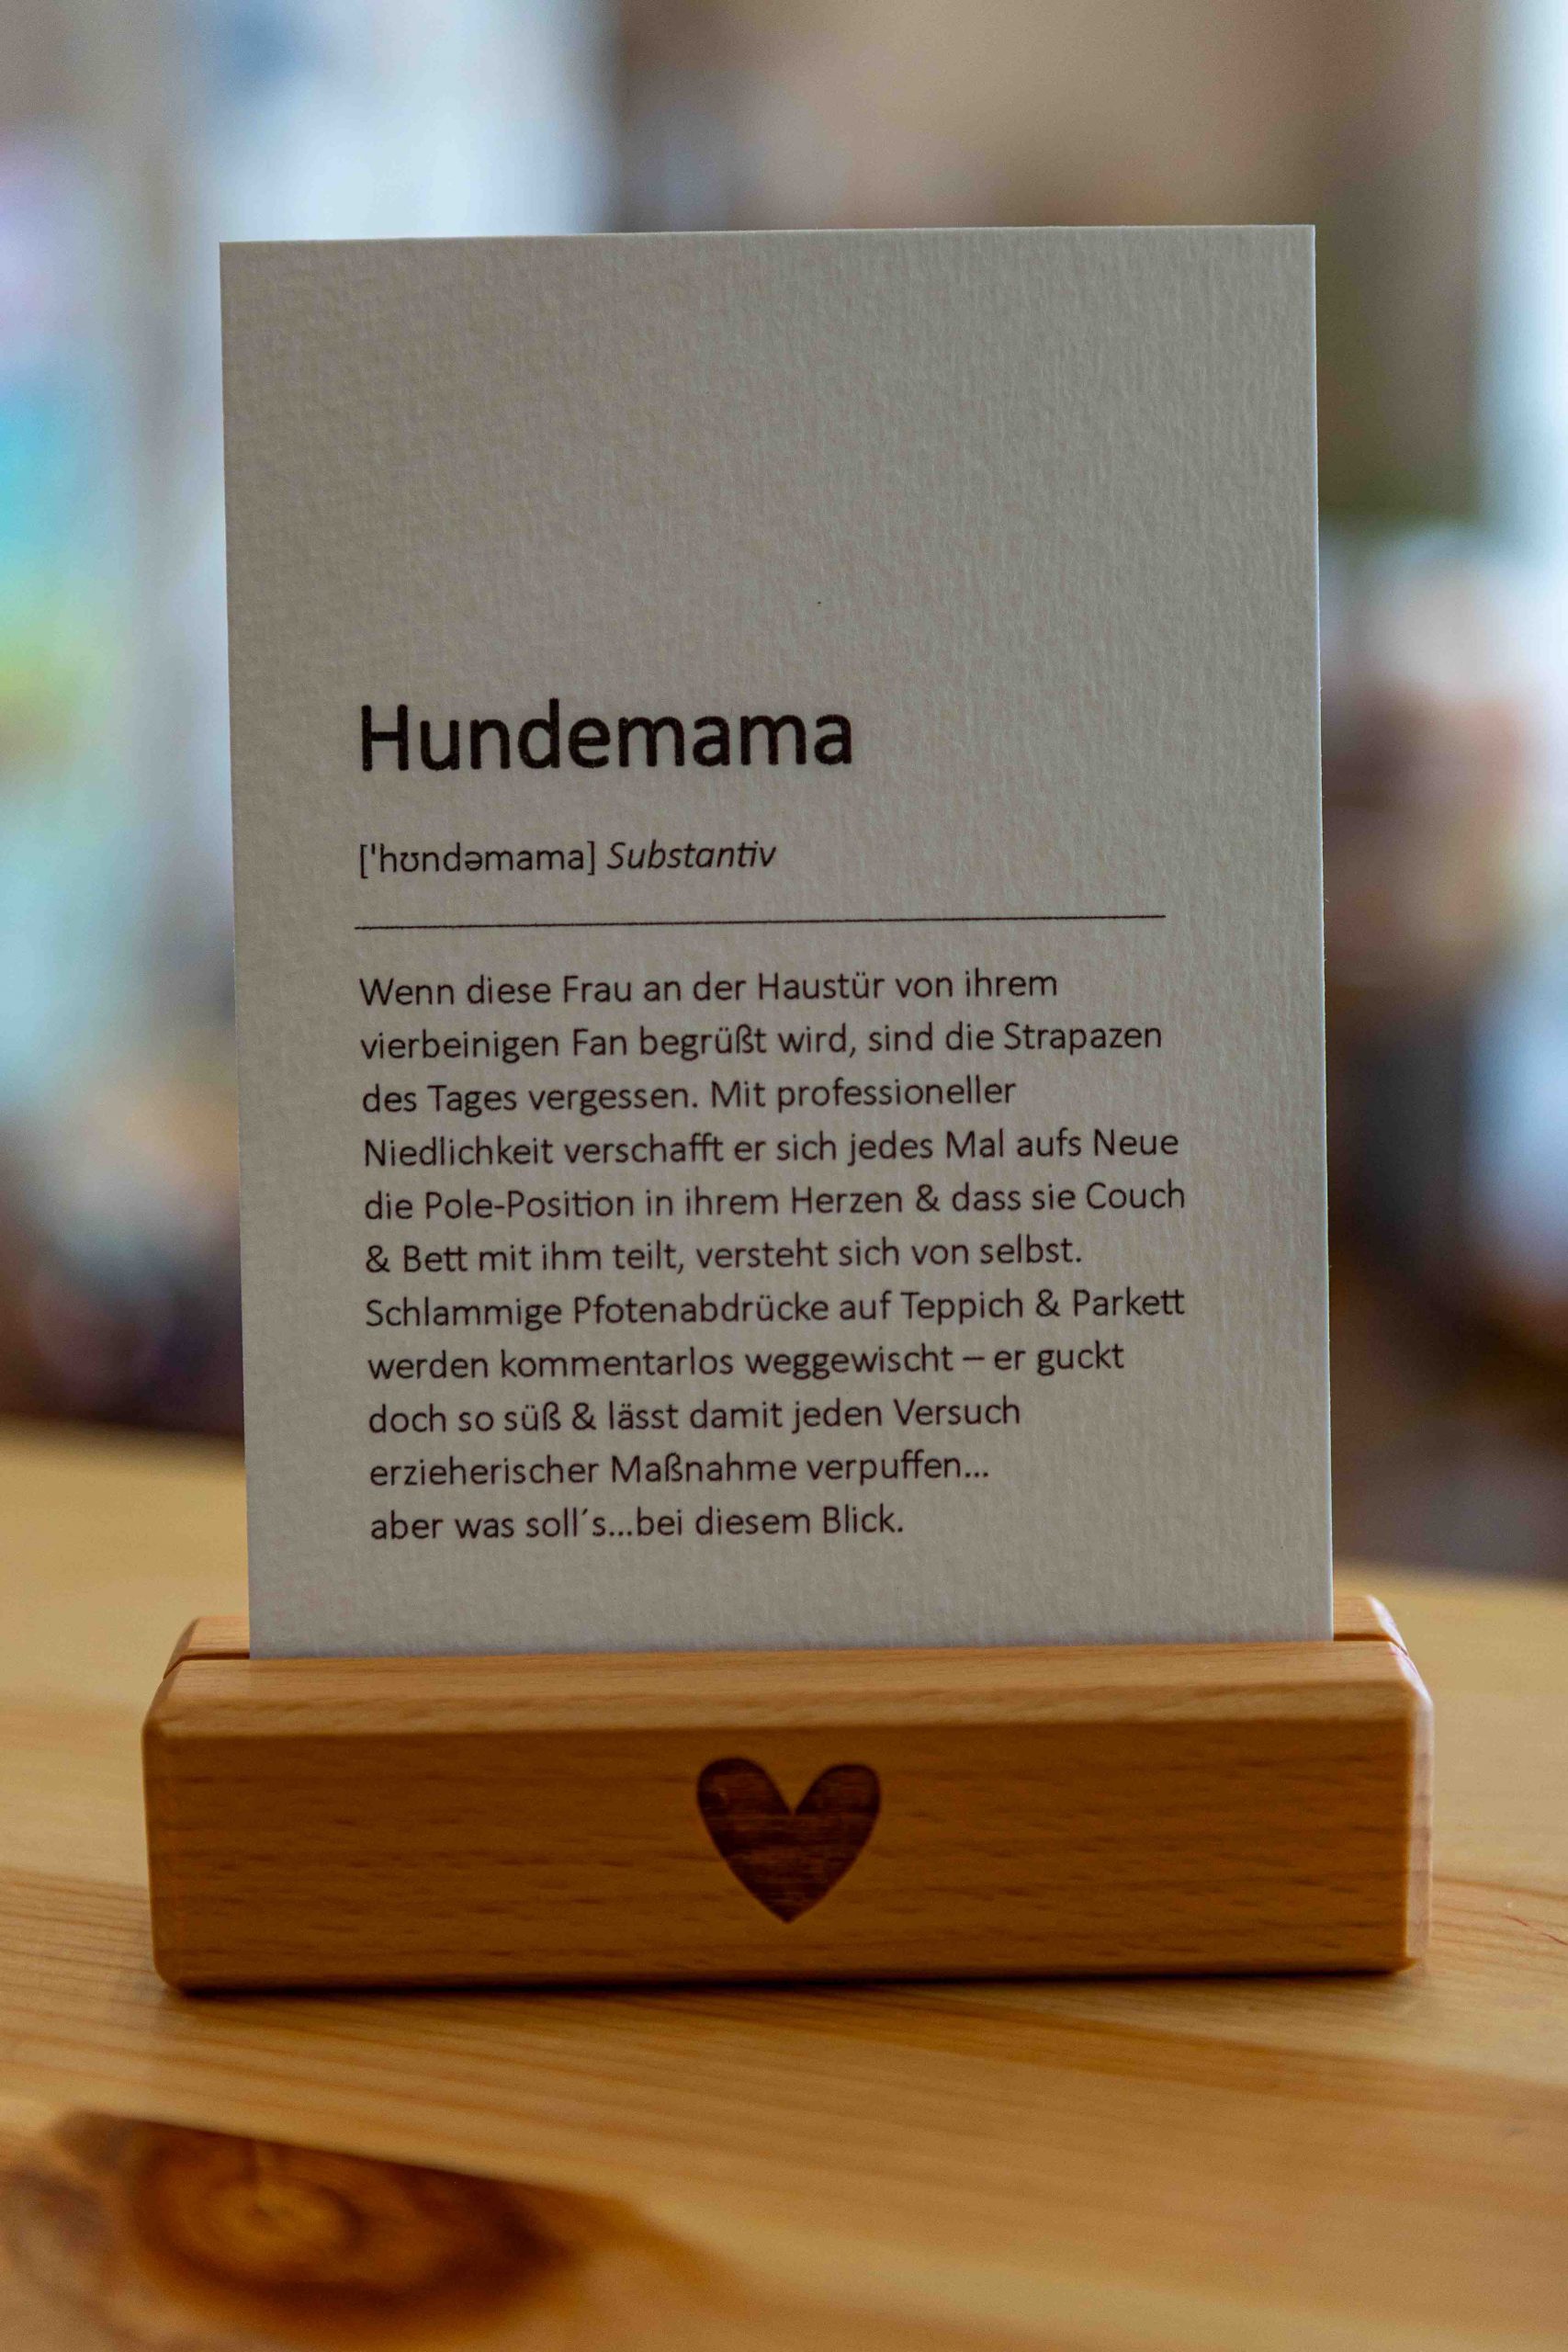 Hundemama
['hʊndəmama] Substantiv
Wenn diese Frau an der Haustür von ihrem
vierbeinigen Fan begrüßt wird, sind die Strapazen
des Tages vergessen. Mit professioneller
Niedlichkeit verschafft er sich jedes Mal aufs Neue
die Pole-Position in ihrem Herzen & dass sie Couch
& Bett mit ihm teilt, versteht sich von selbst.
Schlammige Pfotenabdrücke auf Teppich & Parkett
werden kommentarlos weggewischt – er guckt
doch so süß & lässt damit jeden Versuch
erzieherischer Maßnahme verpuffen...
aber was soll´s...bei diesem Blick.